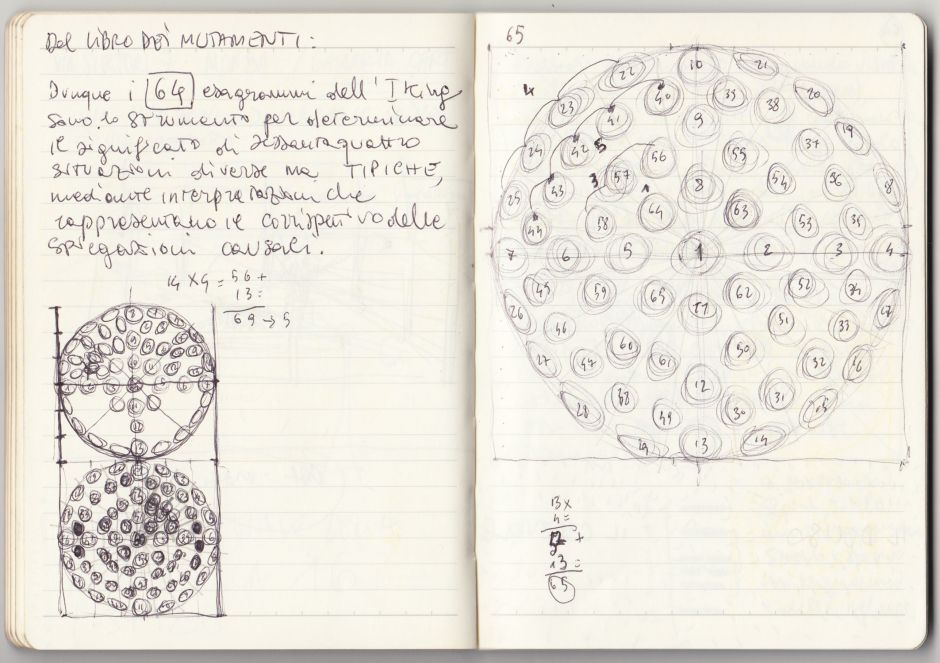 DAL LIBRO DEI MUTAMENTI:
Dunque i 64 esagrammi dell'I King
sono lo strumento per determinare
il significato di sessantaquattro
situazioni diverse ma TIPICHE,
mediante interpretazioni che
rappresentano il corrispettivo delle
spiegazioni causali.
14 x 4 = 56 +
13 =
69 → 5
65
10 21
22 39 20
4 40 38
23 41 9 19
37
24 42 5 56 55
3 57 1 8 54 36 18
25 43 64 63
58 53 35
44
7 6 5 1 2 3 4
45 59 65 62 52 34
26 11 17
46 51 33
60 50
27 47 61 32 16
12
48 31
28 49 30 15
29 13 14
13 x
4 =
+
13 =
65